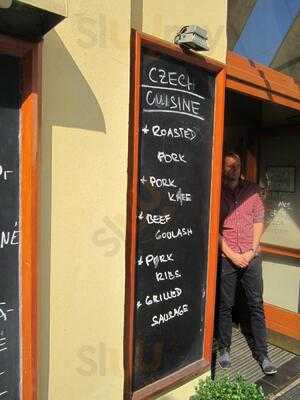 CZECH
CUISINE
* ROASTED
PORK
* PORK
KNEE
* BEEF
GOULASH
* PORK
RIBS
* GRILLED
SAUSAGE